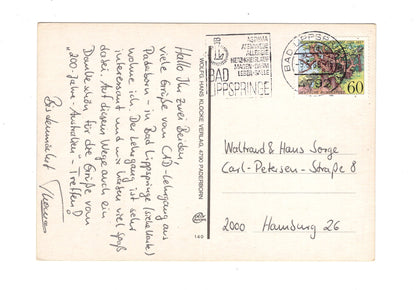 Hallo Ihr zwei Beiden,
viele Grüße vom CAD-Lehrgang aus
Paderborn – in Bad Lippspringe (siehe Karte)
wohne ich. Der Lehrgang ist sehr
interessant und wir haben viel Spaß
dabei. Auf diesem Wege auch ein
Dankeschön für die Grüße vom
"200-Jahre-Australien-Treffen"
Bis demnächst
WOLFG. HANS KLOCKE VERLAG, 4790 PADERBORN
149
ASTHMA
ATEMWEGE
ALLERGIE
HERZ-KREISLAUF
MAGEN-DARM
LEBER-GALLE
BAD
LIPPSPRINGE
BAD LIPPSPRINGE
4792
60
Waltraud & Hans Sorge
Carl-Petersen-Straße 8
2000 Hamburg 26